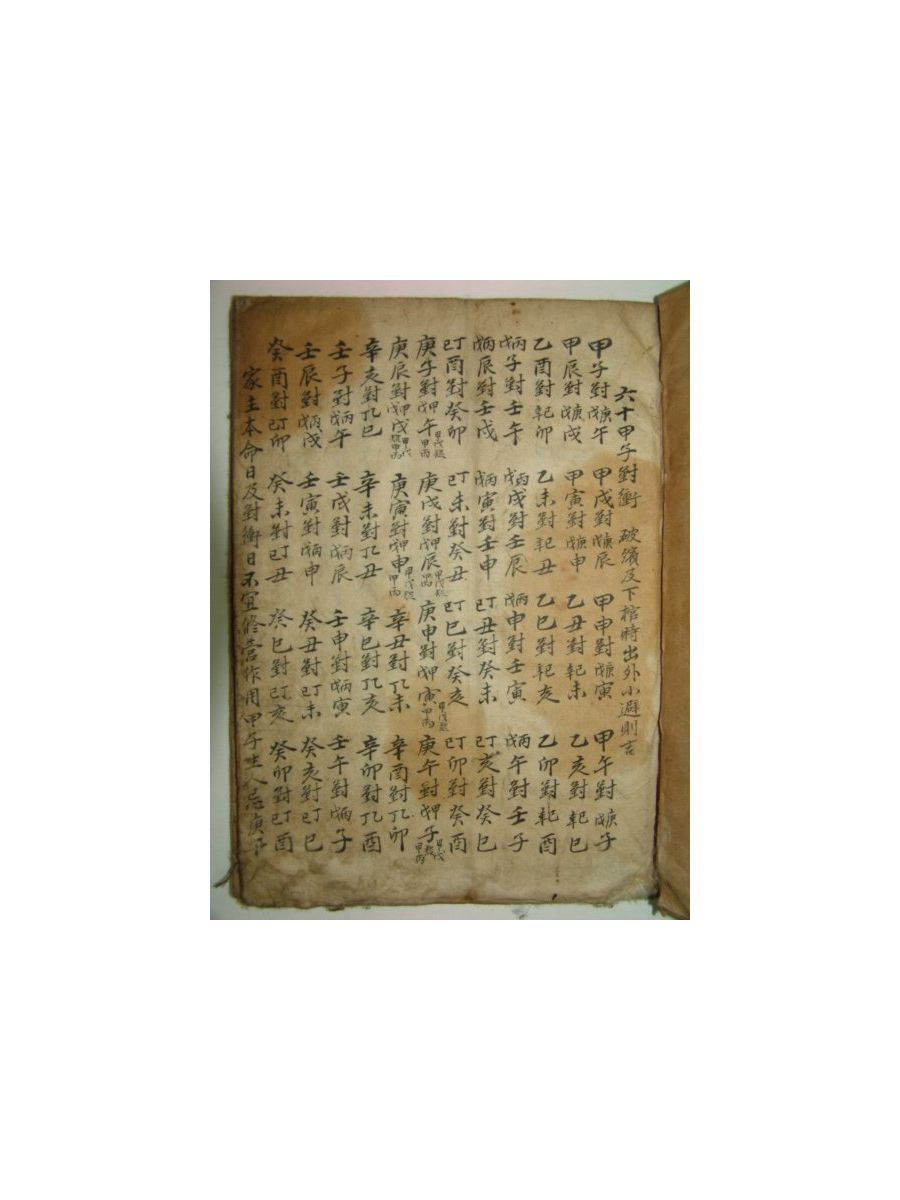 六十甲子對衝 破殯及下棺時出外小避則吉
甲子對庚戊午 甲戌對庚戊辰 甲申對庚戊寅 甲午對庚戊子
甲辰對庚戊戌 甲寅對庚戊申 乙丑對辛己未 乙亥對辛己巳
乙酉對辛己卯 乙未對辛己丑 乙巳對辛己亥 乙卯對辛己酉
丙戊子對壬午 丙戊戌對壬辰 丙戊申對壬寅 丙戊午對壬子
丙戊辰對壬戌 丙戊寅對壬申 丁己丑對癸未 丁己亥對癸巳
丁己酉對癸卯 丁己未對癸丑 丁己巳對癸亥 丁己卯對癸酉
庚子對甲戊午 甲戊 甲丙 庚戌對甲戊辰 甲戊 甲丙 庚申對甲戊寅 甲戊 甲丙 庚午對甲戊子 甲戊 甲丙
庚辰對甲戊戌 甲戊 甲丙 庚寅對甲戊申 甲戊 甲丙 辛丑對丁乙未 辛酉對丁乙卯
辛亥對丁乙巳 辛未對丁乙丑 辛巳對丁乙亥 辛卯對丁乙酉
壬子對丙戊午 壬戌對丙戊辰 壬申對丙戊寅 壬午對丙戊子
壬辰對丙戊戌 壬寅對丙戊申 癸丑對丁己未 癸亥對丁己巳
癸酉對丁己卯 癸未對丁己丑 癸巳對丁己亥 癸卯對丁己酉
家主本命日及對衝日不宜修營作用甲子生人忌庚